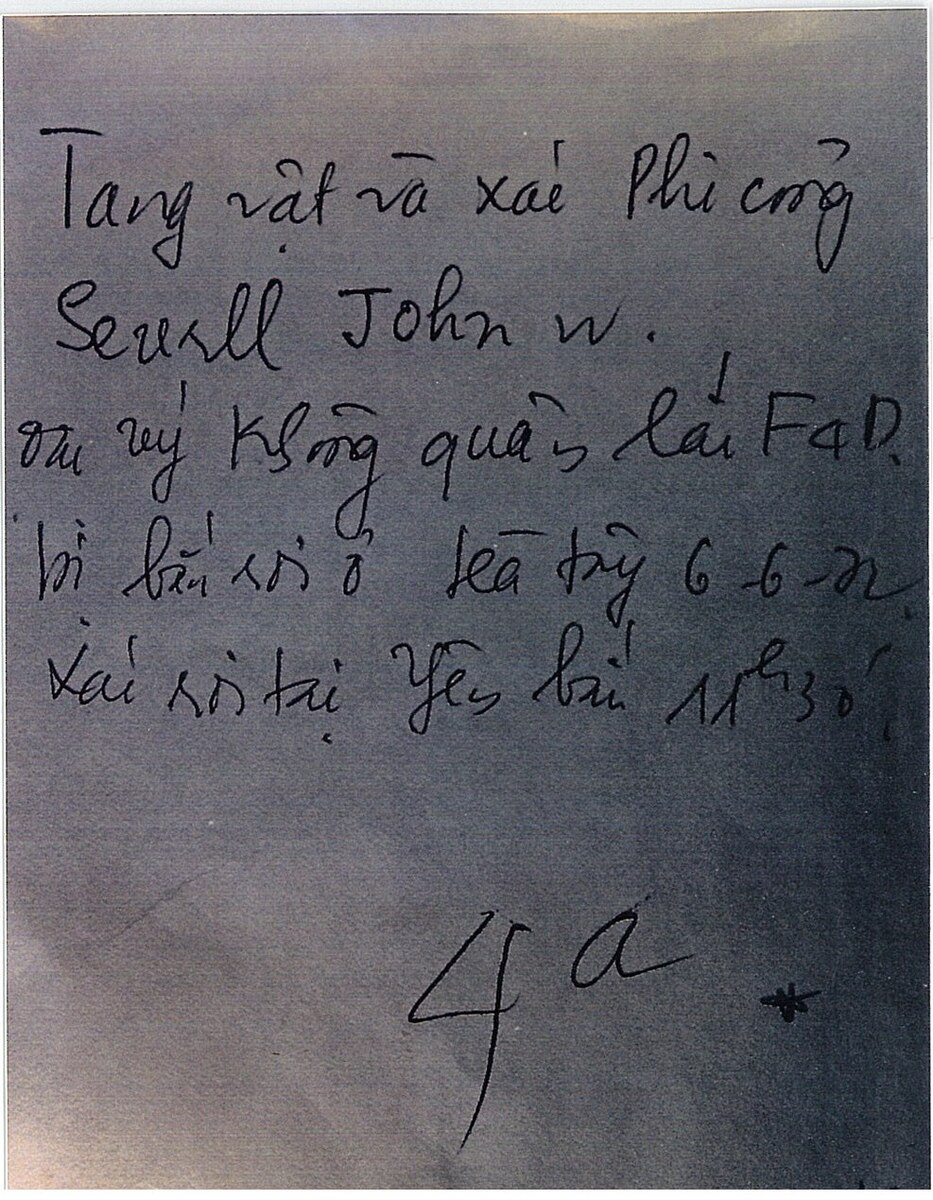 Tang vật và xác Phi công
Seuell John W.
đại uý Không quân lái F4D.
bị bắn rơi ở 6-6-72
Xác rơi tại Yên bái 11h30'.
4a *